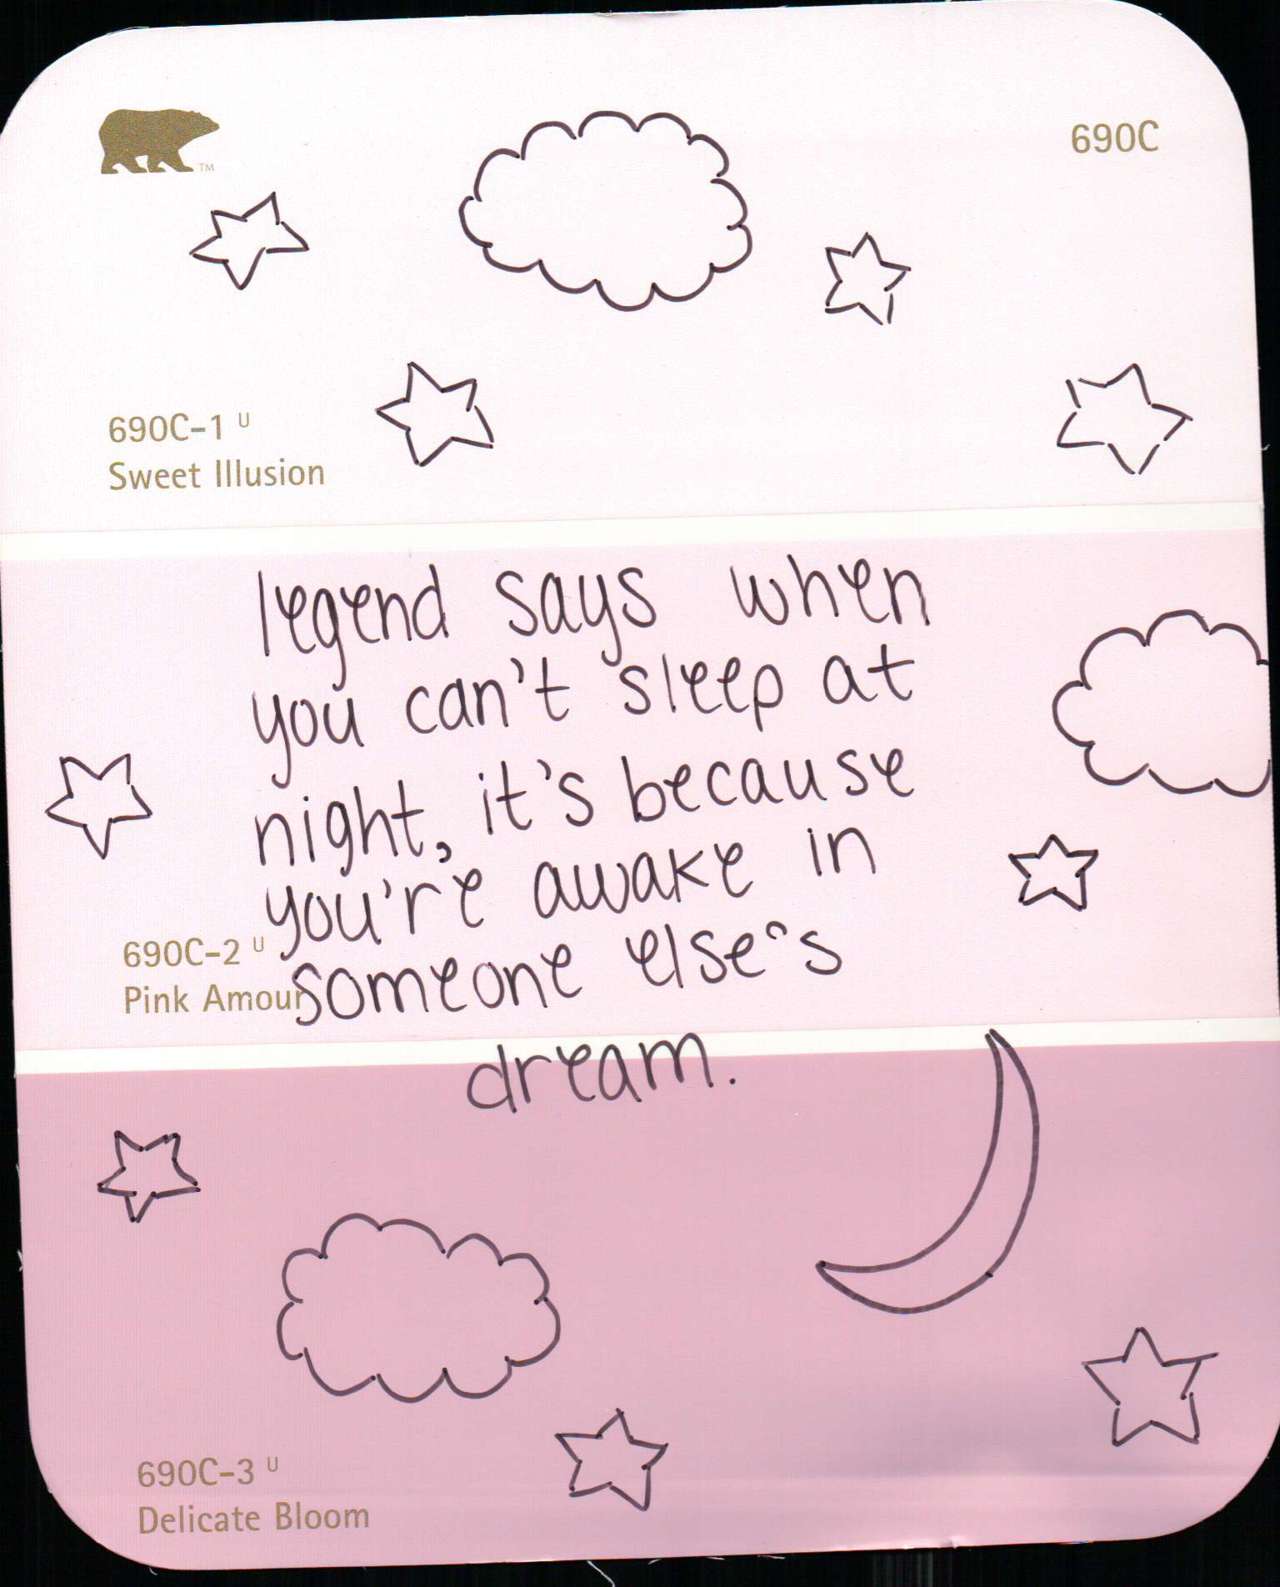 TM
690C
690C-1 U
Sweet Illusion
legend says when
you can't sleep at
night, it's because
you're awake in
someone else's
dream.
690C-2 U
Pink Amour
690C-3 U
Delicate Bloom